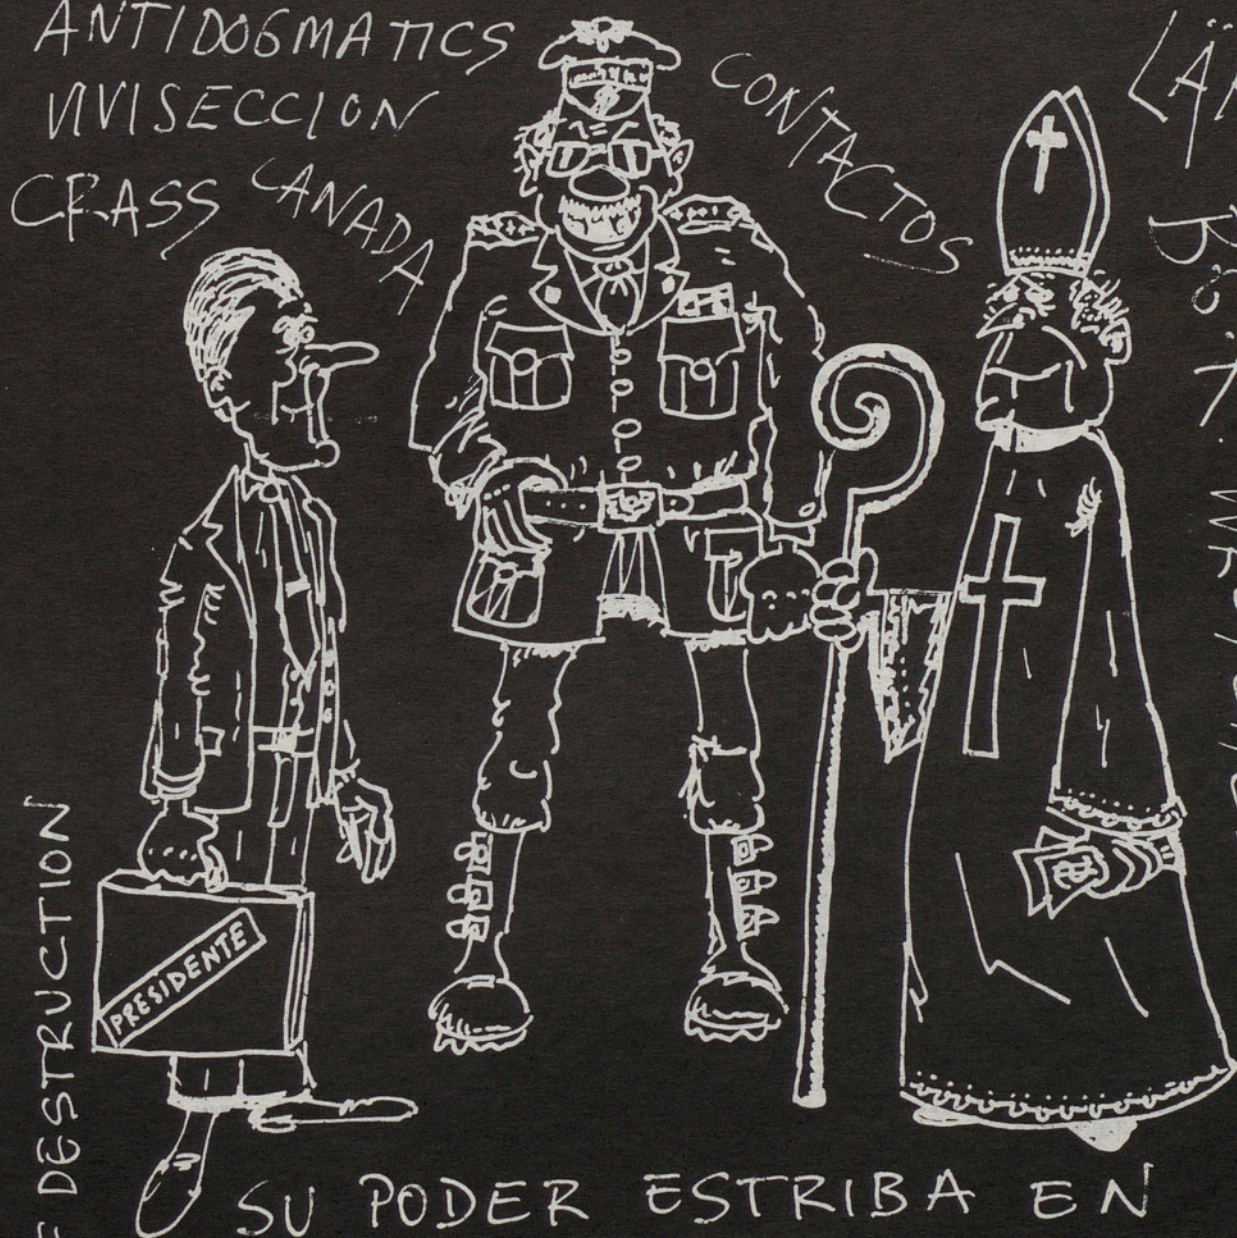 ANTIDOGMATICS
VIVISECCION
CRASS
CANADA
CONTACTOS
DESTRUCTION
PRESIDENTE
SU PODER ESTRIBA EN